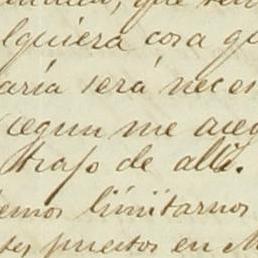 que
lquiera cosa q
aría será neces
segun me ase
trajo de allí.
emos limitarnos
tes puestos en M